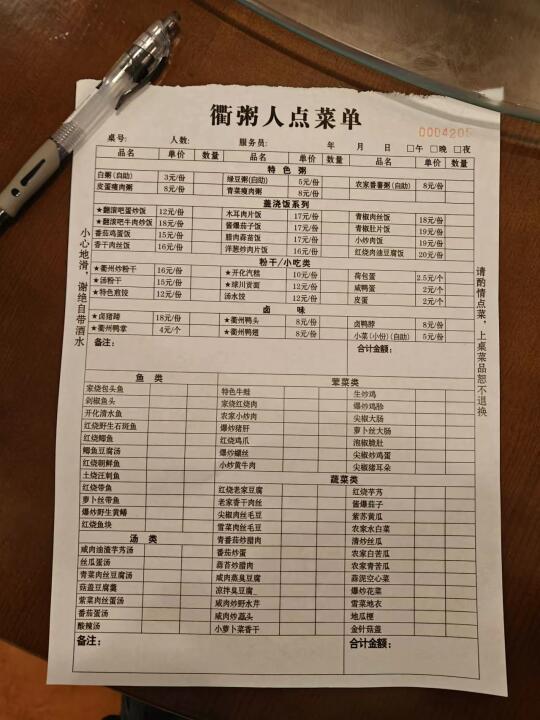 衢粥人点菜单
0004205
桌号: 人数: 服务员: 年 月 日 □午 □晚 □夜
品名 单价 数量 品名 单价 数量 品名 单价 数量
特色粥
白粥(自助) 3元/份 绿豆粥(自助) 5元/份 农家番薯粥(自助) 8元/份
皮蛋瘦肉粥 8元/份 青菜瘦肉粥 8元/份
盖浇饭系列
★翻滚吧蛋炒饭 12元/份 木耳肉片饭 17元/份 青椒肉丝饭 18元/份
★翻滚吧牛肉炒饭 18元/份 酱爆茄子饭 17元/份 青椒肚片饭 19元/份
番茄鸡蛋饭 15元/份 腊肉蒜苗饭 17元/份 小炒肉饭 19元/份
香干肉丝饭 16元/份 洋葱炒肉片饭 16元/份 红烧肉油豆腐饭 20元/份
粉干/小吃类
★衢州炒粉干 16元/份 ★开化汽糕 10元/份 荷包蛋 2.5元/个
★汤粉干 15元/份 ★球川贡面 12元/份 咸鸭蛋 2元/个
★特色煎饺 12元/份 汤水饺 12元/份 皮蛋 2元/个
卤味
★卤猪蹄 18元/份 ★衢州鸭头 8元/份 卤鸭脖 8元/份
★衢州鸭掌 4元/个 ★衢州鸭翅 8元/份 小菜(小份)(自助) 5元/份
备注: 合计金额:
小心地滑，谢绝自带酒水
请酌情点菜，上桌菜品恕不退换
鱼类 荤菜类
家烧包头鱼 特色牛蛙 生炒鸡
剁椒鱼头 家烧红烧肉 爆炒鸡胗
开化清水鱼 农家小炒肉 尖椒大肠
红烧野生石斑鱼 爆炒猪肝 萝卜丝大肠
红烧鲫鱼 红烧鸡爪 泡椒脆肚
鲫鱼豆腐汤 爆炒螺丝 尖椒炒鸡蛋
红烧朝鲜鱼 小炒黄牛肉 尖椒猪耳朵
土烧汪刺鱼 蔬菜类
红烧带鱼 红烧老家豆腐 红烧芋艿
萝卜丝带鱼 老家香干肉丝 酱爆茄子
爆炒野生黄鳝 尖椒肉丝毛豆 紫苏黄瓜
红烧鱼块 雪菜肉丝毛豆 农家水白菜
汤类 青番茄炒腊肉 清炒丝瓜
咸肉油渣芋艿汤 番茄炒蛋 农家白苦瓜
丝瓜蛋汤 蒜苔炒腊肉 农家青苦瓜
青菜肉丝豆腐汤 咸肉蒸臭豆腐 蒜泥空心菜
菇盖豆腐羹 凉拌臭豆腐 爆炒花菜
紫菜肉丝蛋汤 咸肉炒野水芹 雪菜地衣
番茄蛋汤 咸肉炒藠头 地瓜梗
酸辣汤 小萝卜菜香干 金针菇盖
备注: 合计金额: